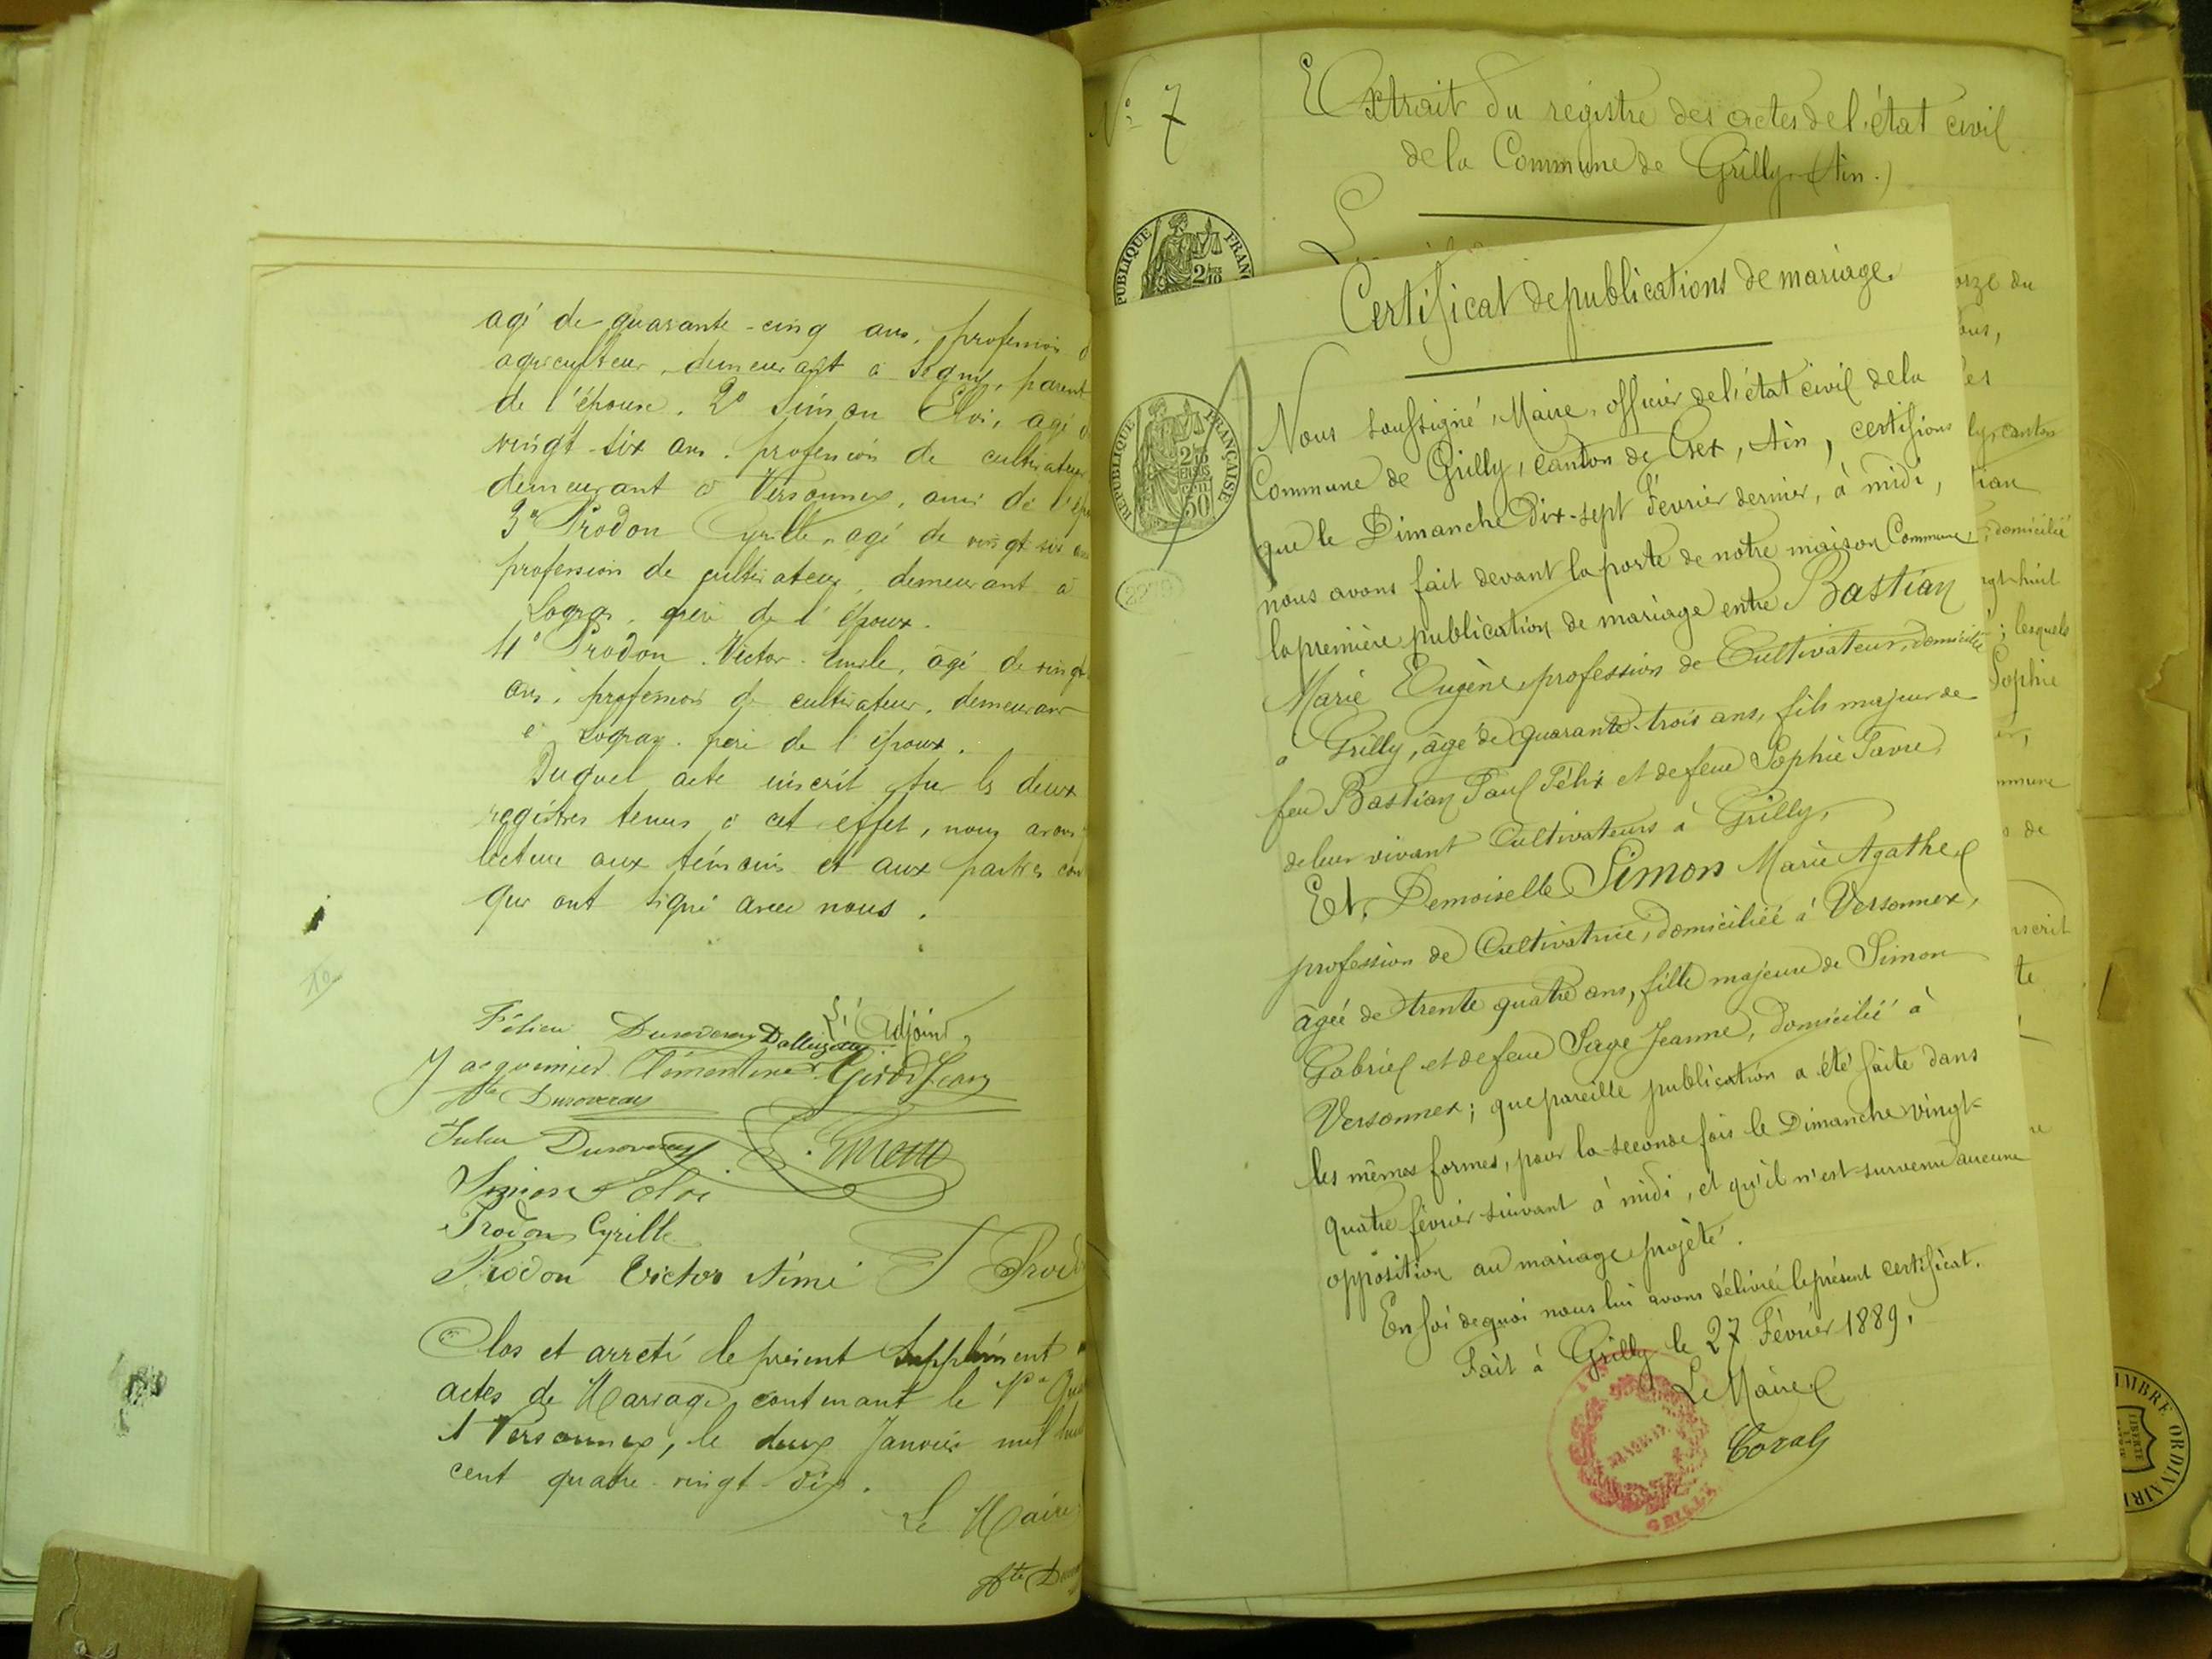 agé de quarante-cinq ans, profession d
agriculteur, demeurant à Segny, parent
de l'épouse. 2° Simon Eloi, agé d
vingt-six ans, profession de cultivateur
demeurant à Versonnex, ami de l'épo
3° Prodon Cyrille, agé de vingt six ans
profession de cultivateur, demeurant à
de l'époux.
4° Prodon Victor agé de vingt
ans, profession de cultivateur, demeurant
à de l'époux.
Duquel acte inscrit sur les deux
registres tenus à cet effet, nous avons
lecture aux témoins et aux parties com
qui ont signé avec nous.
L'Adjoint,
Félicie Duroveray
Jacquemier Clémentine Girod Jean
Duroveray
Duroveray
Simon Eloi
Prodon Cyrille
Prodon Victor Aimé J Prod
Clos et arreté le présent Supplément
actes de Mariage contenant le
A Versonnex, le deux Janvier mil huit
cent quatre-vingt-dix.
Le Maire
N° 7
Extrait du registre des actes de l'état civil
de la Commune de Grilly (Ain.)
Certificat de publications de mariage.
Nous soussigné, Maire, officier de l'état civil de la
Commune de Grilly, canton de Gex, Ain, certifions
que le Dimanche Dix-sept Février dernier, à midi,
nous avons fait devant la porte de notre maison Commune,
la première publication de mariage entre Bastian
Marie Eugène, profession de Cultivateur, domicilié
à Grilly, âgé de quarante-trois ans, fils majeur de
feu Bastian Paul Félix et de feue Sophie Favre,
de leur vivant Cultivateurs à Grilly,
Et, Demoiselle Simon Marie Agathe
profession de Cultivatrice, domiciliée à Versonnex,
âgée de trente quatre ans, fille majeure de Simon
Gabriel et de feue Sage Jeanne, domicilié à
Versonnex; que pareille publication a été faite dans
les mêmes formes, pour la seconde fois le Dimanche vingt-
quatre février suivant à midi, et qu'il n'est survenu aucune
opposition au mariage projeté.
En foi de quoi nous lui avons délivré le présent certificat.
Fait à Grilly le 27 Février 1889.
Le Maire
REPUBLIQUE FRANÇAISE
GRILLY
orze du
ous,
ly, canton
domicilié
ngt-huit
; lesquels
Sophie
mmune
de
nscrit
te
TIMBRE ORDINAIRE